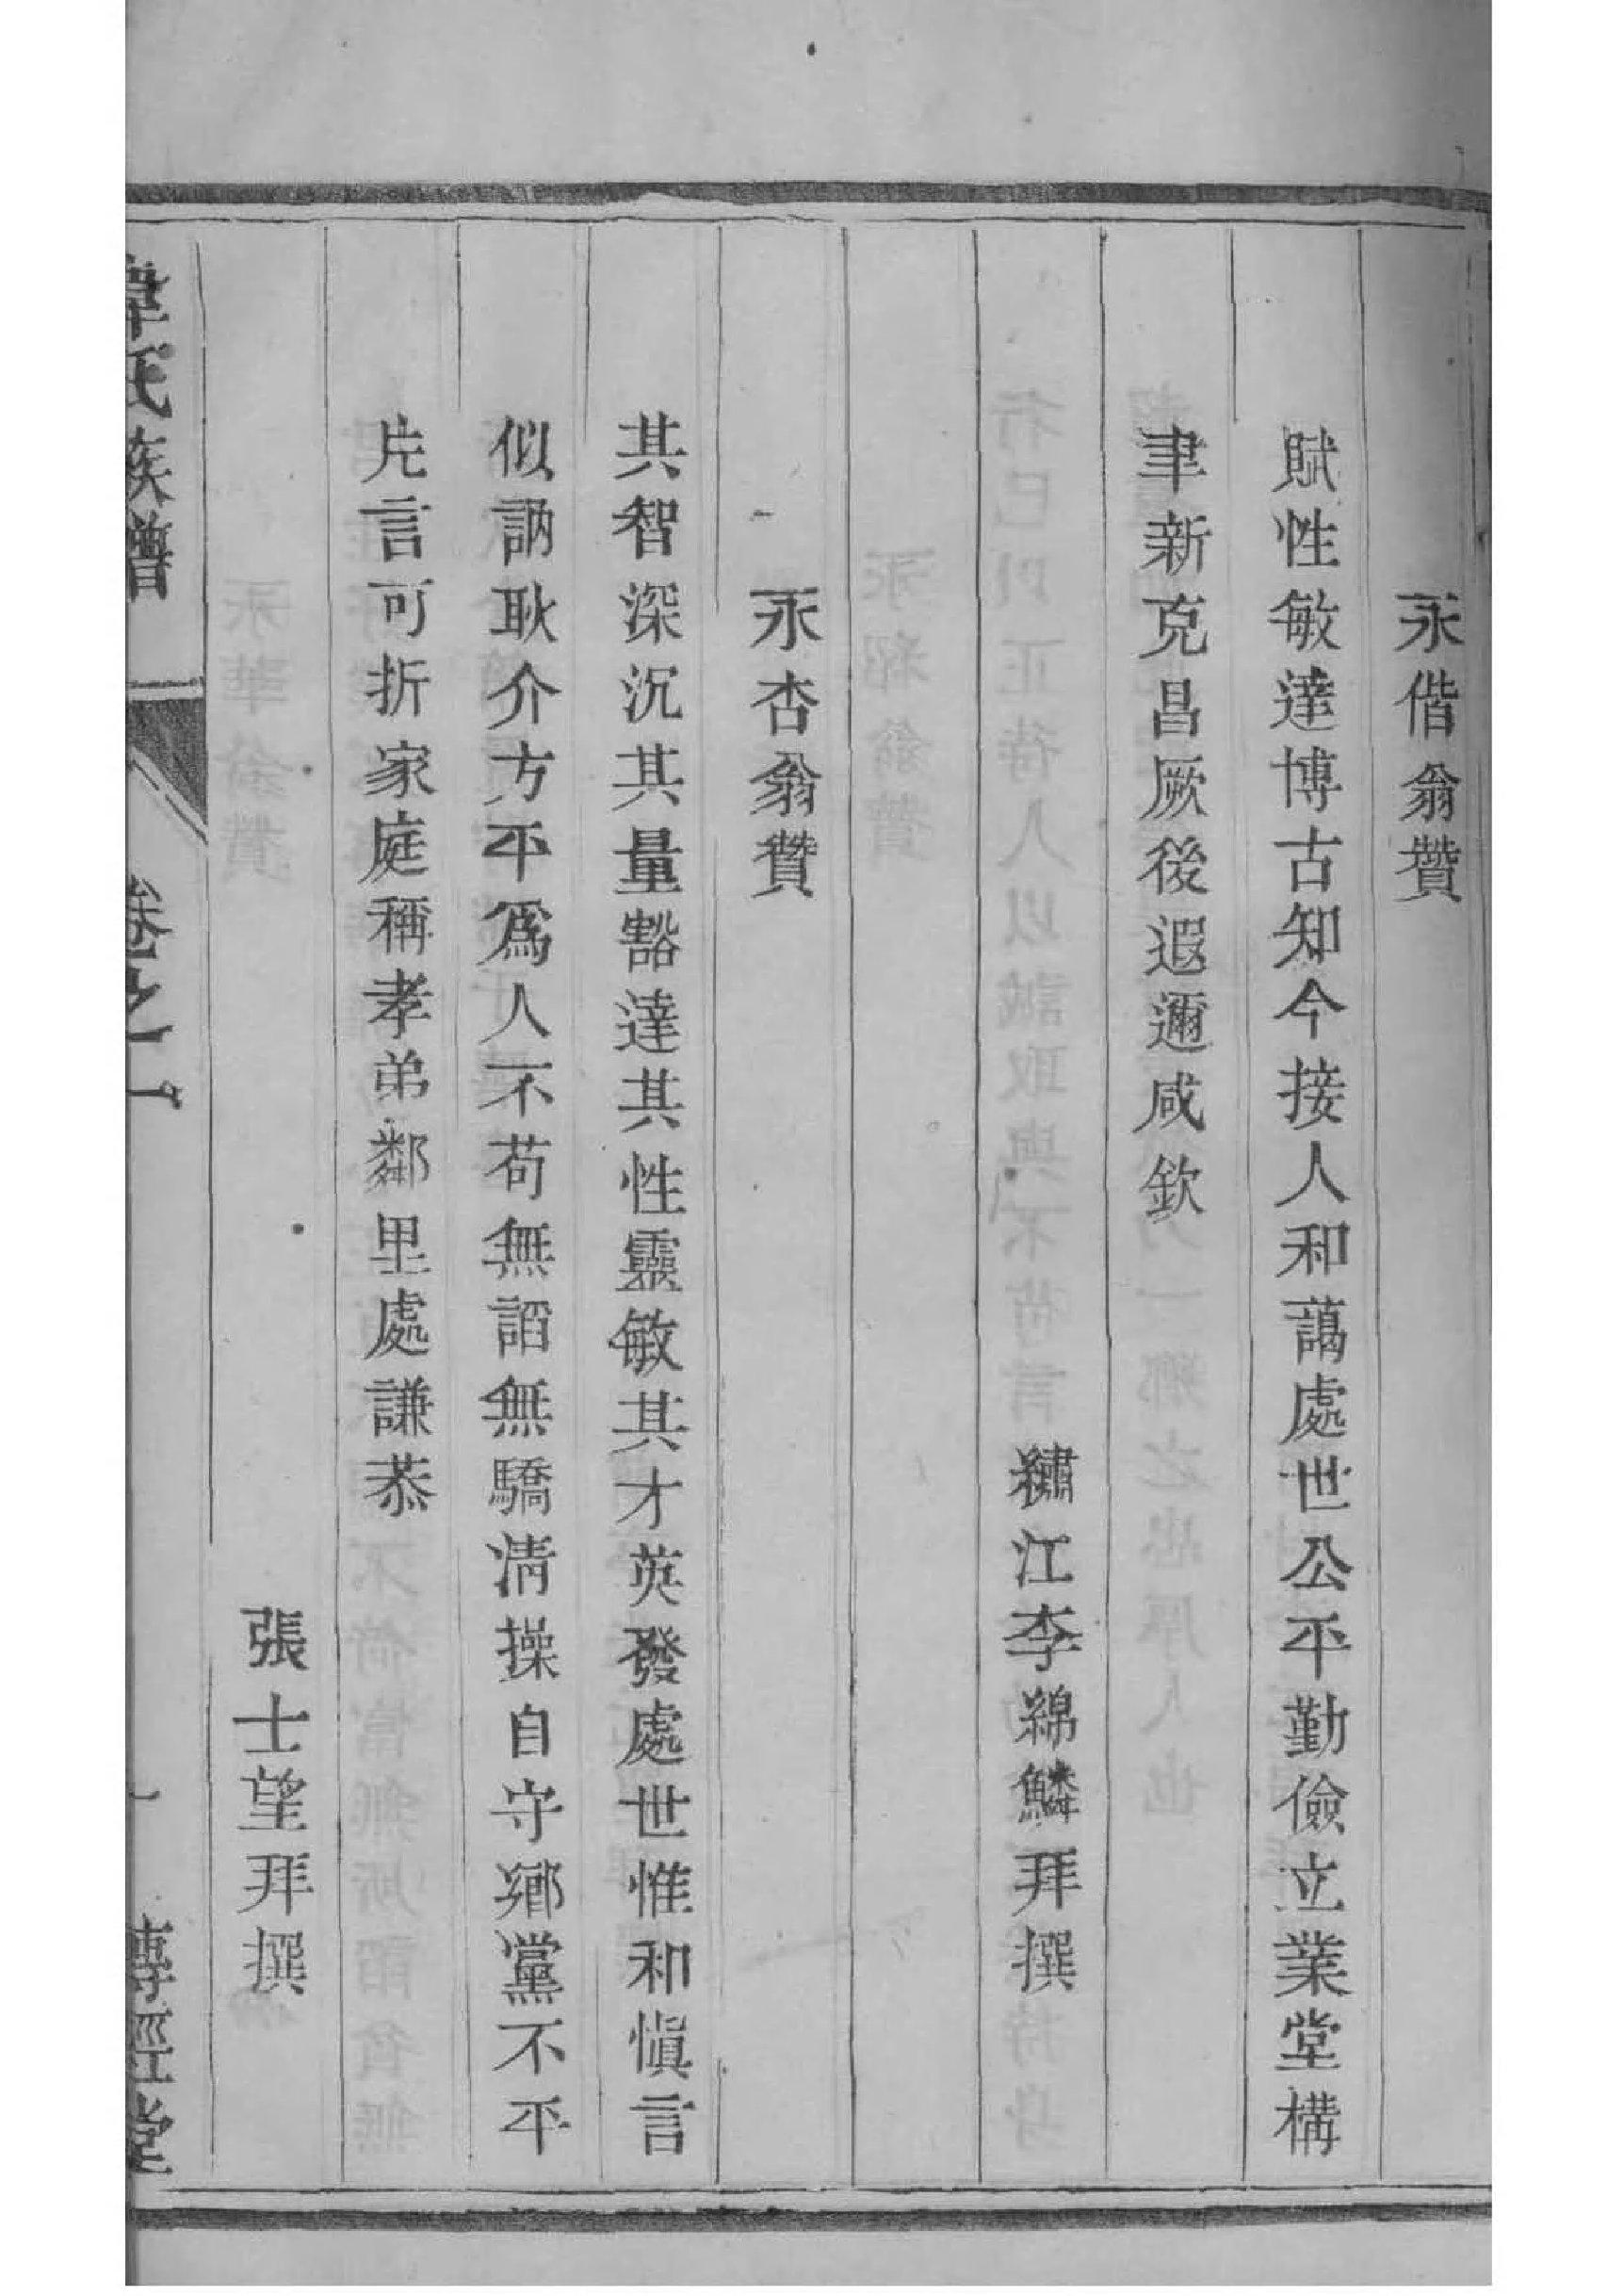 永偕翁贊
賦性敏達博古知今接人和藹處世公平勤儉立業堂構
聿新克昌厥後遐邇咸欽
繡江李綿麟拜撰
永杏翁贊
其智深沉其量豁達其性靈敏其才英發處世惟和愼言
似訥耿介方平爲人不苟無諂無驕淸操自守鄉黨不平
片言可折家庭稱孝弟鄰里處謙恭
張士望拜撰
韋氏族譜 卷之一 傳經堂